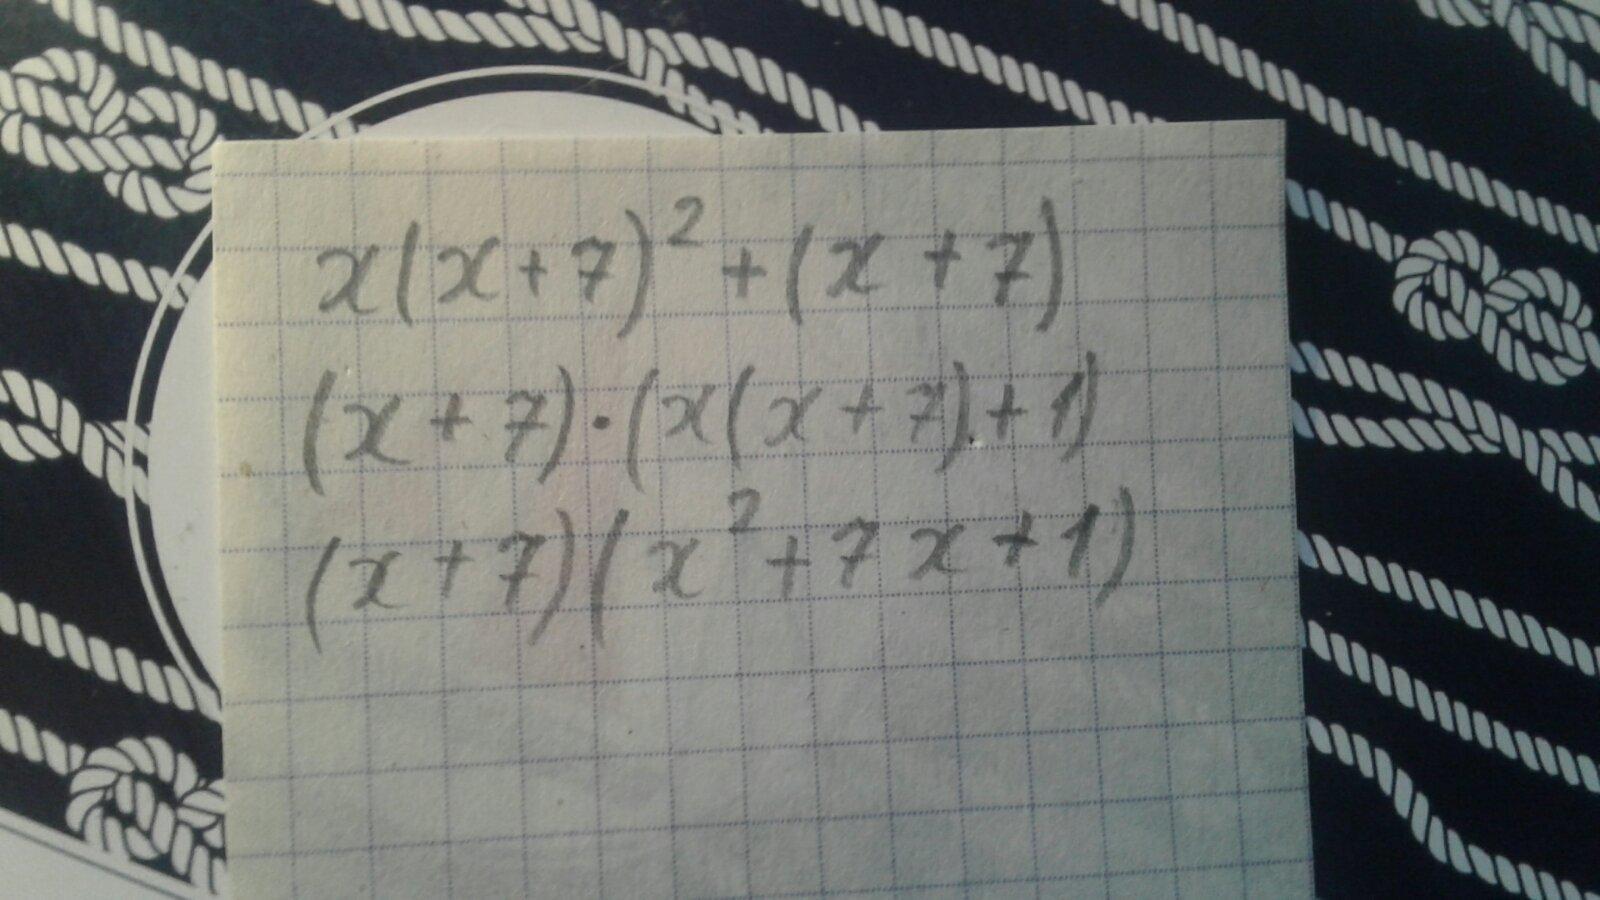 x(x+7)² + (x+7)
(x+7)·(x(x+7)+1)
(x+7)(x²+7x+1)